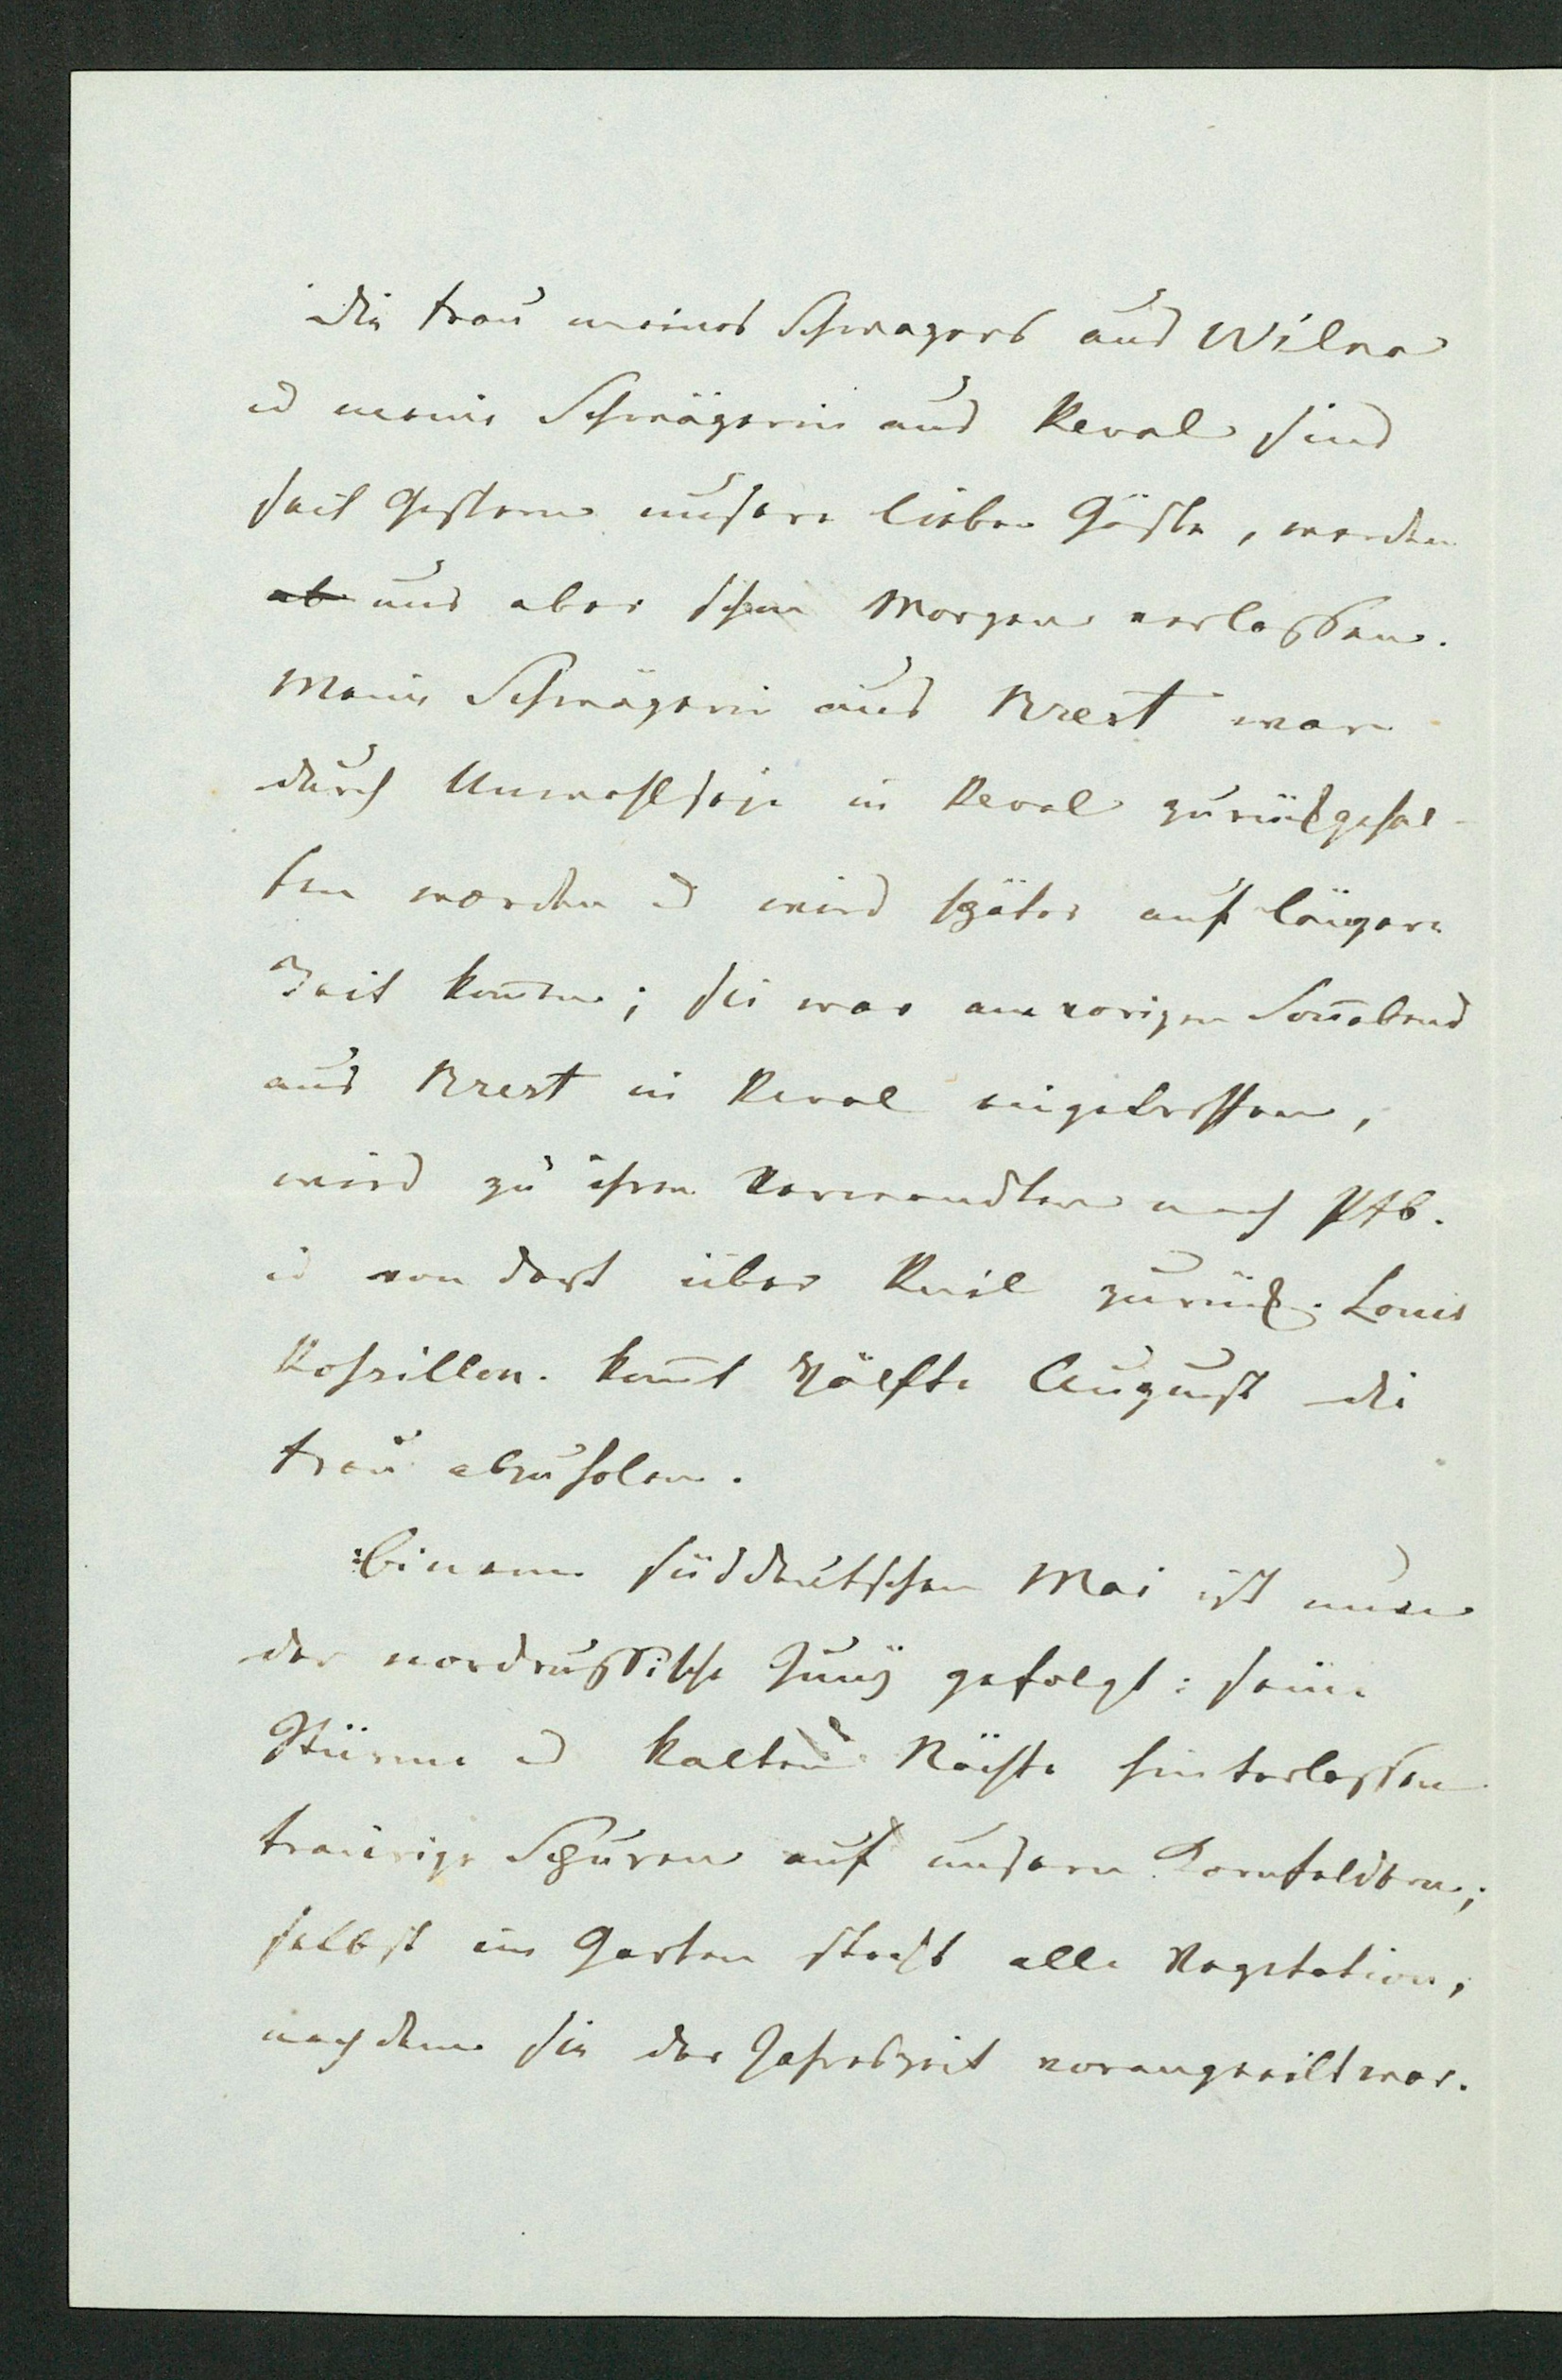 Die Frau meines Schwagers aus Wilna
u meine Schwägerin aus Reval sind
seit Gestern unsere lieben Gäste, werden
ab uns aber schon Morgen verlassen.
Meine Schwägerin aus Brest war
durch Unwohlseyn in Reval zurückgehal-
ten worden u wird später auf längere
Zeit kom̅en; sie war am vorigen Son̅abend
aus Brest in Reval eingetroffen,
wird zu ihren Verwandten nach Ptb.
u von dort über Kuil zurück. Louis
Rossillon. kom̅t Hälfte August die
Frau abzuholen.
Einem süddeutschen Mai ist nun
der nordrussische Juny gefolgt: seine
Stürme u kalten Nächte hinterlassen
traurige Spuren auf unsern Kornfeldern;
selbst im Garten stockt alle Vegetation,
nachdem sie der Jahreszeit vorangeeilt war.